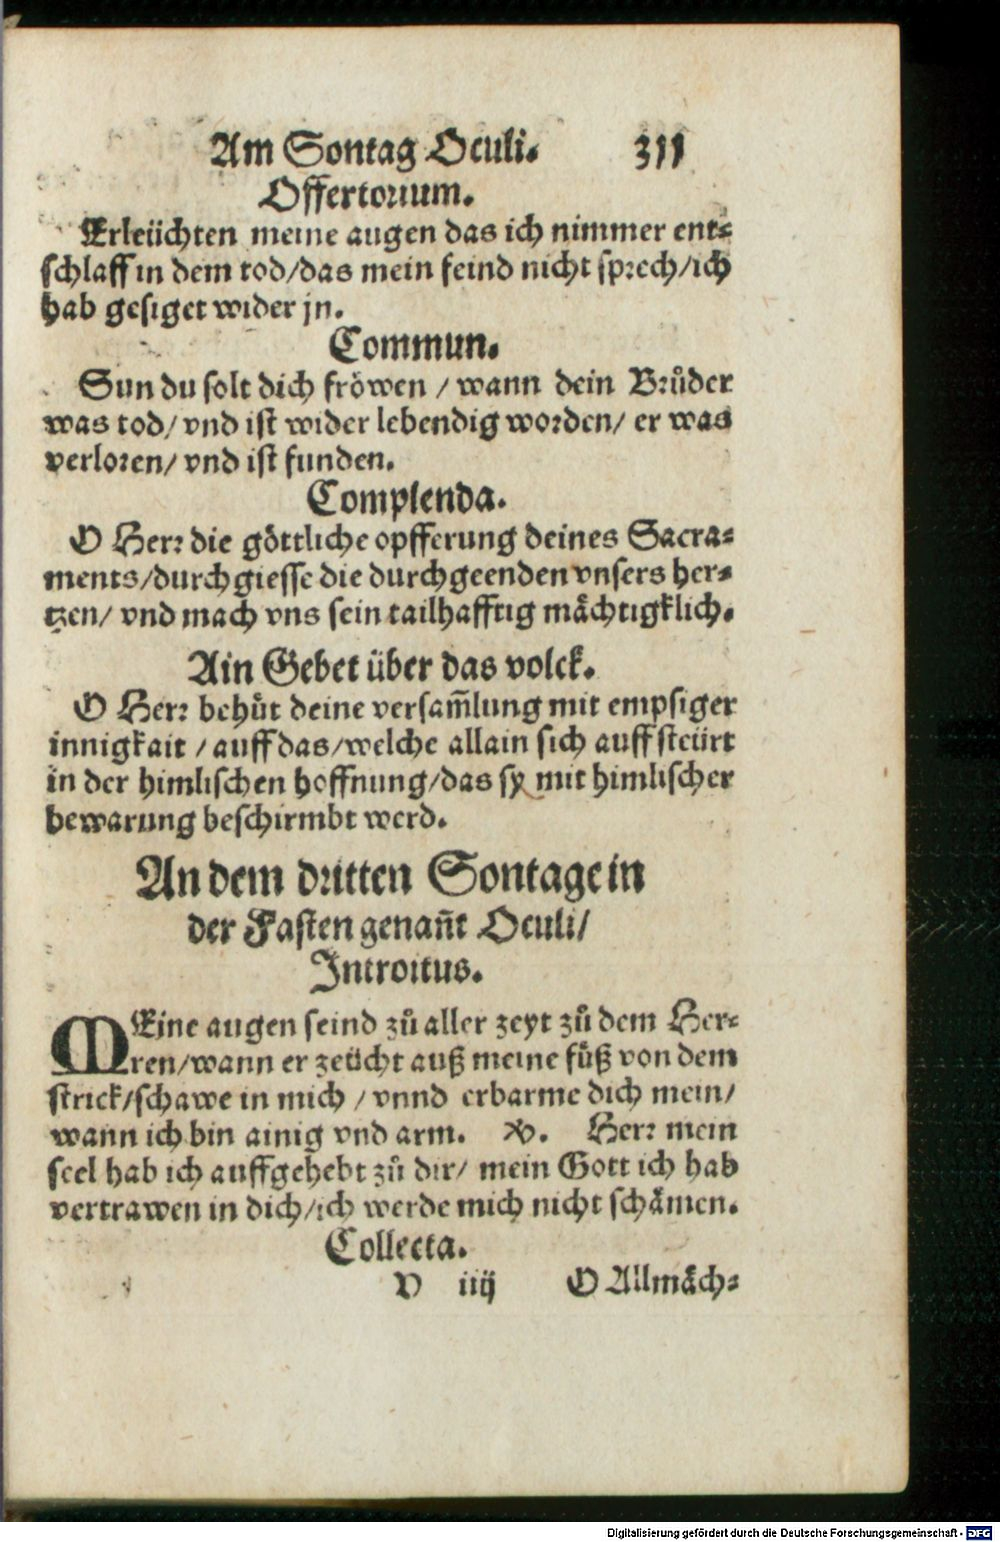 Am Sontag Oculi. 311
Offertorium.
Erleüchten meine augen das ich nimmer ent⸗
schlaff in dem tod/das mein feind nicht sprech/ich
hab gesiget wider jn.
Commun.
Sun du solt dich fröwen / wann dein Brůder
was tod/ vnd ist wider lebendig worden/ er was
verloren/ vnd ist funden.
Complenda.
O Herr die göttliche opfferung deines Sacra⸗
ments/durchgiesse die durchgeenden vnsers her⸗
tzen/ vnd mach vns sein tailhafftig mächtigklich.
Ain Gebet über das volck.
O Herr behůt deine versam̃lung mit empsiger
innigkait / auff das/welche allain sich auff steürt
in der himlischen hoffnung/das sy mit himlischer
bewarung beschirmbt werd.
An dem dritten Sontage in
der Fasten genañt Oculi/
Introitus.
MEine augen seind zů aller zeyt zů dem Her⸗
ren/wann er zeücht auß meine fůß von dem
strick/schawe in mich / vnnd erbarme dich mein/
wann ich bin ainig vnd arm. ℣. Herr mein
seel hab ich auffgehebt zů dir/ mein Gott ich hab
vertrawen in dich/ich werde mich nicht schämen.
Collecta.
V iiij O Allmäch⸗
Digitalisierung gefördert durch die Deutsche Forschungsgemeinschaft - DFG